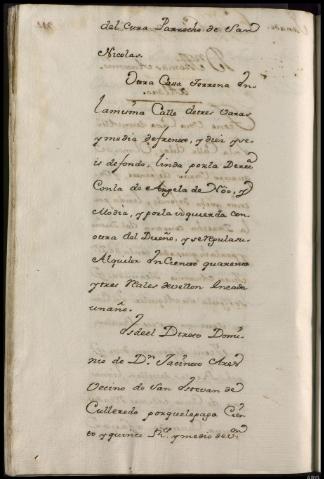 del Cura Parrocho de San
Nicolas.
Otra Casa Terrena En
lamisma Calle detres Varas
y media defrente, y diez y se
is defondo, linda porla Derª
Conla de Angela de Nós, y
Modia, y porla izquierda con
otra del Dueño, y seRegulasu
Alquiler En Ciento quarenta
ytres Reales devellon Encada
unaño.
Esdeel Directo Domi
nio de Dn. Jacinto
Vecino de San Estevan de
Culleredo porquelepaga Cien
to y quince Rs. y medio de Von